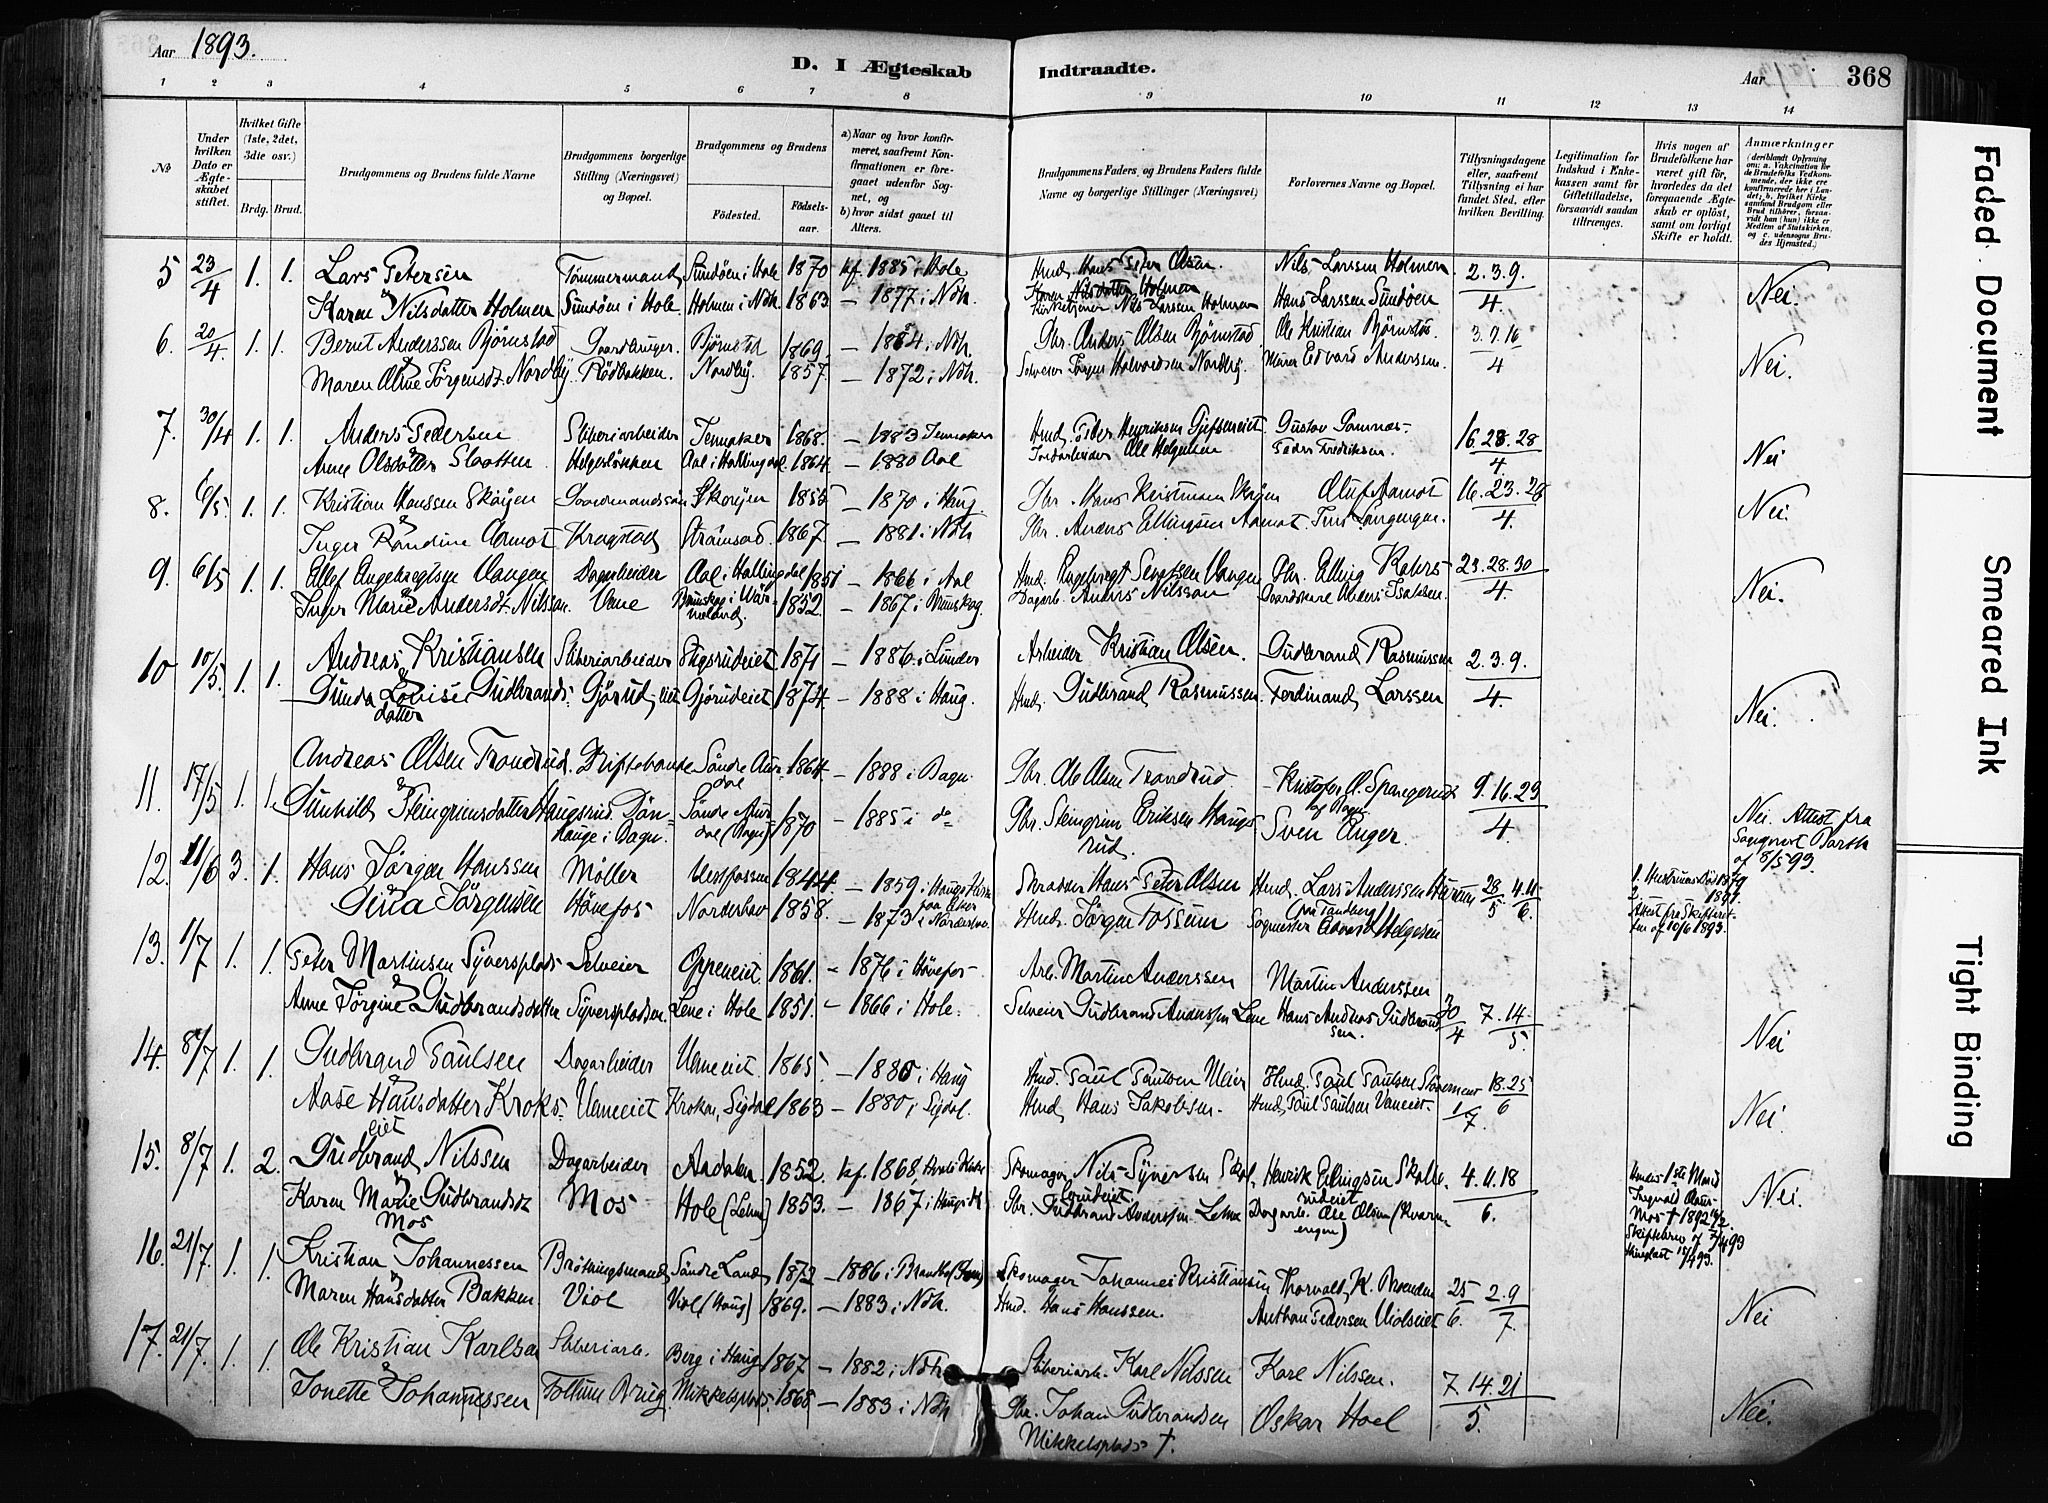 Aar 1893.
D. I Ægteskab Indtraadte.
Aar 368
1 2 3 4 5 6 7 8 9 10 11 12 13 14
No
Under hvilken Dato er Ægteskabet stiftet.
Hvilket Gifte (1ste, 2det, 3die osv.)
Brdg. Brud.
Brudgommens og Brudens fulde Navne
Brudgommens borgerlige Stilling (Næringsvei) og Bopæl.
Brudgommens og Brudens
Fødested. Fødselsaar.
a) Naar og hvor konfirmeret, saafremt Konfirmationen er foregaaet udenfor Sognet, og
b) hvor sidst gaaet til Alters.
Brudgommens Faders og Brudens Faders fulde Navne og borgerlige Stillinger (Næringsvei)
Forlovernes Navne og Bopæl.
Tillysningsdagene eller, saafremt Tillysning ei har fundet Sted, efter hvilken Bevilling.
Legitimation for Indskud i Enkekassen samt for Giftetilladelse, forsaavidt saadan tiltrænges.
Hvis nogen af Brudefolkene har været gift før, hvorledes da det foregaaende Ægteskab er opløst, samt om lovligt Skifte er holdt.
Anmærkninger
5 23/4 1. 1. Lars Petersen Tømmermand Sundøen i Hole 1870 kf. 1885 i Hole Hmd. Hans Peter Olsen. Nils Larssen Holmen 2.3.9.
Karen Nilsdatter Holmen Sundøen i Hole Holmen i Ndh. 1863 — 1877 i Ndh. Kirketjener Nils Larssen Holmen Hans Larssen Sundøen 4. Nei.
6. 20/4 1. 1. Bernt Anderssen Bjørnstad Gaardbruger. Bjørnstad 1869. — 1884 i Ndh. Gbr. Anders Olsen Bjørnstad Ole Kristian Bjørnstad 3.9.16
Maren Oline Jørgensdt. Nordby Rødbakken. Nordby. 1857. — 1872 i Ndh. Selveier Jørgen Halvordsen Nordby. Murer Edvard Anderssen. 4 Nei.
7. 30/4 1. 1. Anders Pedersen Sliberiarbeider Jevnaker 1868. — 1883 Jevnaker Hmd. Peder Henriksen Gustav Pamnæs. 16.23.28
Anne Olsdatter Slaatten Helgesløkken Aal i Hallingdal. 1864 — 1880 Aal Ole Helgesen Fredriksen. 4. Nei
8. 6/5. 1. 1. Kristian Hanssen Skøyen Gaardmandssøn Skøyen 1855 — 1870 i Haug. Gbr. Hans Kristiansen Skøyen Oluf Aamot 16.23.28
Inger Randine Aamot Kragstad Strømsod. 1867 — 1881 i Ndh Gbr. Anders Ellingsen Aamot. 4. Nei.
9. 6/5 1. 1. Dagarbeider Aal i Hallingdal 1851 — 1866 i Aal Hmd. Gbr. Elling 23.28.30
Inger Marie Andersdt. Nilsson. Vane Brunskog i Wärmeland. 1852 — 1867 i Brunskog. Dagarb. Anders Nilsson Anders Isaksen. 4. Nei.
10 10/5. 1. 1. Andreas Kristiansen Sliberiarbeider Stigsrudeiet 1871 — 1886 i Lunder Arbeider Kristian Olsen. Gudbrand Rasmussen 2.3.9.
Gunda Lovise Gudbrandsdatter Gjørudeiet Gjørudeiet 1874. — 1888 i Haug. Hmd. Gudbrand Rasmussen. Ferdinand Larssen 4. Nei.
11. 17/5 1. 1. Andreas Olsen Trondrud. Søndre Aurdal 1864 — 1888 i Bagn. Gbr. Ole Olsen Trondrud Kristofer O. Sparegrud af Bagn 9.16.23
Gunhild Steingrimsdatter Haugsrud. i Bagn. Søndre Aurdal (Bagn) 1870 — 1885 i do Gbr. Steingrim Eriksen Haugsrud. Sven Unger. 4 Nei. Attest fra Sogneprest Barth af 8/5 93.
12. 11/6 3. 1. Hans Jørgen Hanssen Møller Vestfossen 1844 — 1859 i Haugs Kirke paa Eker Skrædder Hans Peter Olsen Hmd. Lars Anderssen (fra Tandberg) 28/5 4.11/6. 1. Hustrues Død 1879 2. — 1891. Attest fra Skifteretten af 10/6 1893.
Dina Jørgensen Hønefos Norderhov 1858. — 1873 i Norderhov Hmd. Jørgen Fossum Sagmester Edvard Helgesen
13. 1/7 1. 1. Peter Martinsen Syversplads. Selveier Oppeneiet. 1861. — 1876 i Hønefos Arb. Martin Anderssen Martin Anderssen
Anne Jørgine Gudbrandsdatter Syverspladsen. Lene i Hole 1851. — 1866 i Hole. Selveier Gudbrand Anderssen Lene Hans Andreas Gudbrandsen. 30/4 7.14/5. Nei
14. 8/7 1. 1. Gudbrand Paulsen Dagarbeider Vaneeiet. 1865. — 1880 i Haug Hmd. Paul Paulsen Hmd. Paul Paulsen 18.25/6
Aase Hansdatter Krokseiet Vaneeiet Kroken, Sigdal 1863 — 1880 i Sigdal. Hmd. Hans Jakobsen. Hmd. Paul Paulsen Vaneeiet. 1/7. Nei.
15. 8/7 1. 2. Gudbrand Nilssen Dagarbeider Aadalen 1852. kf. 1868, Skomager Nils Syversen Henrik Ellingsen 4.11.18
Karen Marie Gudbrandsdt. Mos Mos Hole (Lehne) 1853. — 1867 i Gbr. Gudbrand Anderssen Lehne Dagarb. Ole Olsen (Kvernengen) 6. Ingvald Olaus Mos † 1892 Nei.
16. 21/7. 1. 1. Kristian Johannessen Søndre Land 1872 — 1886 i Brandbu Skomager Johannes Kristiansen Thorvald K. 25/6. 2.9/7
Maren Hansdatter Bakken Viol Viol (Haug) 1869. — 1883 i Ndh. Hmd. Hans Hanssen. Anthon Pedersen Violseiet Nei
17. 21/7. 1. 1. Ole Kristian Karlsen Sliberiarb. Berg i Haug 1867 — 1882 i Ndh Sliberiarb. Karl Nilssen Karl Nilssen. 7.14.21
Jonette Johannessen Follum Brug Mikkelsplads. 1868 — 1883 i Ndh Gbr. Johan Gudbrandsen Mikkelsplads †. Oskar Hoel 5. Nei.
Faded Document
Smeared Ink
Tight Binding